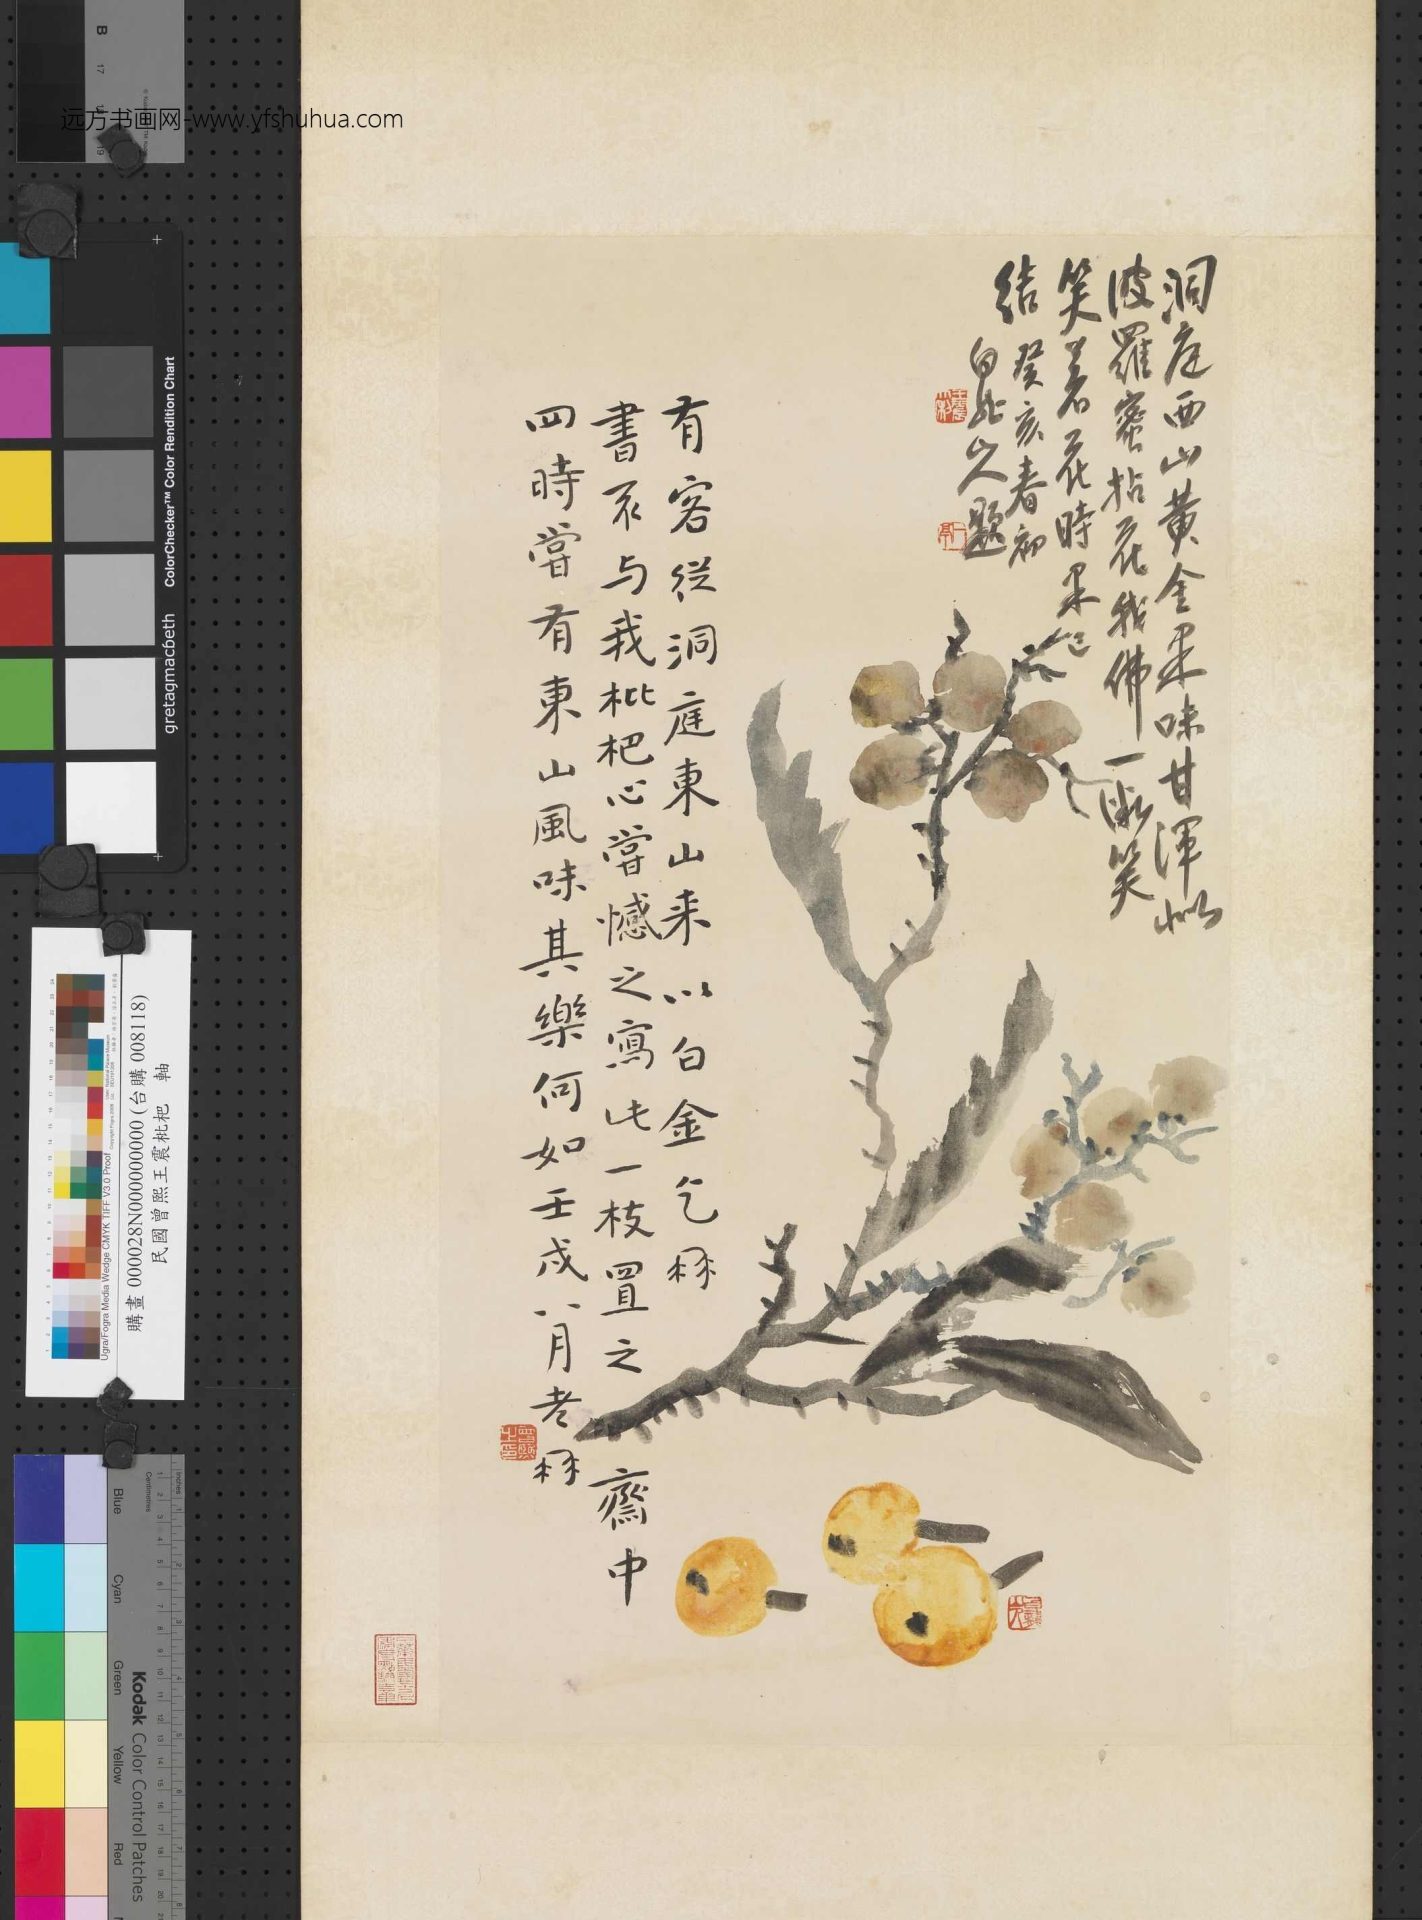 洞庭西山黃金果味甘渾似
波羅蜜拈花我佛一微笑
笑着花時果已
結 癸亥春初
白龍山人題
有客從洞庭東山来以白金乞髥
書不与我枇杷心嘗憾之寫此一枝置之齋中
四時嘗有東山風味其樂何如壬戌八月老髥
远方书画网-www.yfshuhua.com
B
17
19
ColorChecker™ Color Rendition Chart
gretagmacbeth
購畫 000028N000000000 (台購 008118)
民國曾熙王震枇杷 軸
Ugra/Fogra Media Wedge CMYK TIFF V3.0 Proof
Kodak Color Control Patches
Blue
Cyan
Green
Yellow
Red
Inches
Centimetres